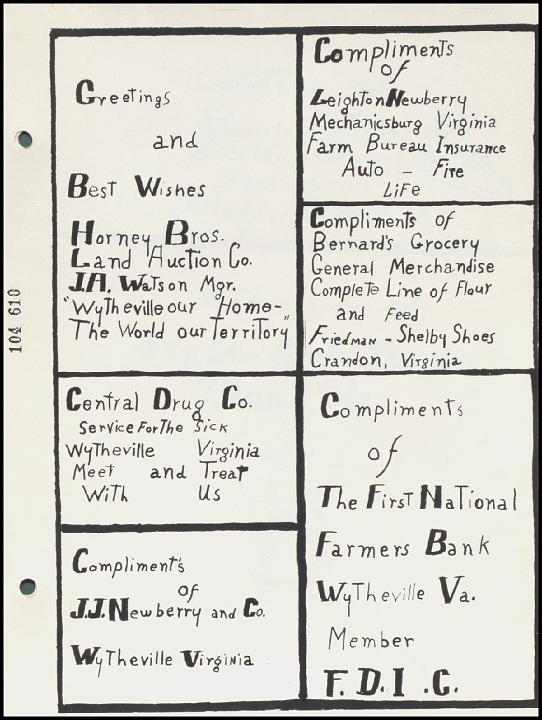 Greetings
and
Best Wishes
Horney Bros.
Land Auction Co.
J.A. Watson Mgr.
"Wytheville our Home-
The World our Territory"
Compliments
of
Leighton Newberry
Mechanicsburg Virginia
Farm Bureau Insurance
Auto - Fire
Life
Compliments of
Bernard's Grocery
General Merchandise
Complete Line of Flour
and Feed
Friedman - Shelby Shoes
Crandon, Virginia
Central Drug Co.
Service For The Sick
Wytheville Virginia
Meet and Treat
With Us
Compliment's
of
J.J. Newberry and Co.
Wytheville Virginia
Compliments
of
The First National
Farmers Bank
Wytheville Va.
Member
F.D.I.C.
104 610